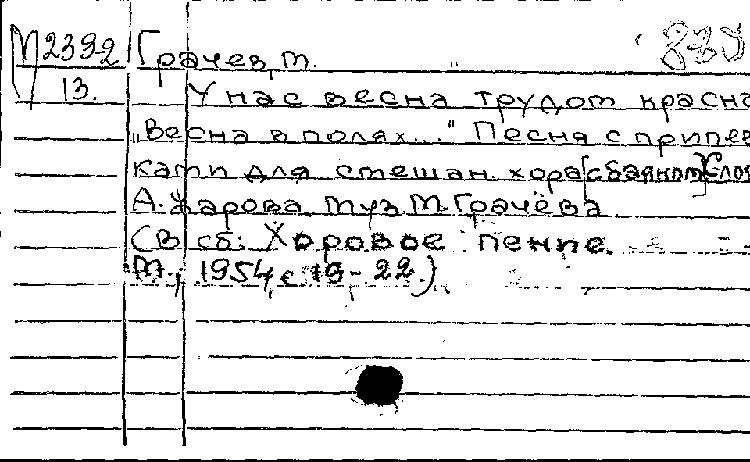 М2392 Грачев, М. 875
13. У нас весна трудом красна
„Весна в полях..." Песня с припев
ками для смешан. хора [с баяном] Слов
А. Жарова муз М. Грачёва
(В сб: Хоровое пение.
М., 1954 с 19-22.)